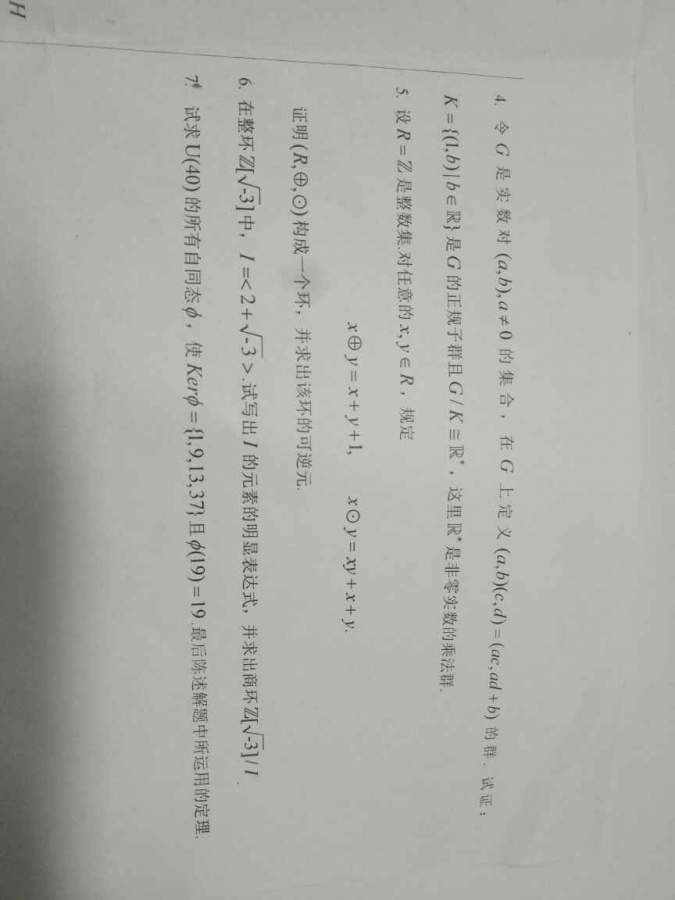 H
4. 令 G 是实数对 (a,b),a≠0 的集合，在 G 上定义 (a,b)(c,d)=(ac,ad+b) 的群. 试证：
K={(1,b)|b∈ℝ} 是 G 的正规子群且 G/K≅ℝ*，这里 ℝ* 是非零实数的乘法群.
5. 设 R=ℤ 是整数集.对任意的 x,y∈R，规定
x⊕y=x+y+1, x⊙y=xy+x+y.
证明 (R,⊕,⊙) 构成一个环，并求出该环的可逆元.
6. 在整环 ℤ[√-3] 中，I=<2+√-3>.试写出 I 的元素的明显表达式，并求出商环 ℤ[√-3]/I.
7. 试求 U(40) 的所有自同态 ϕ，使 Kerϕ={1,9,13,37} 且 ϕ(19)=19.最后陈述解题中所运用的定理.